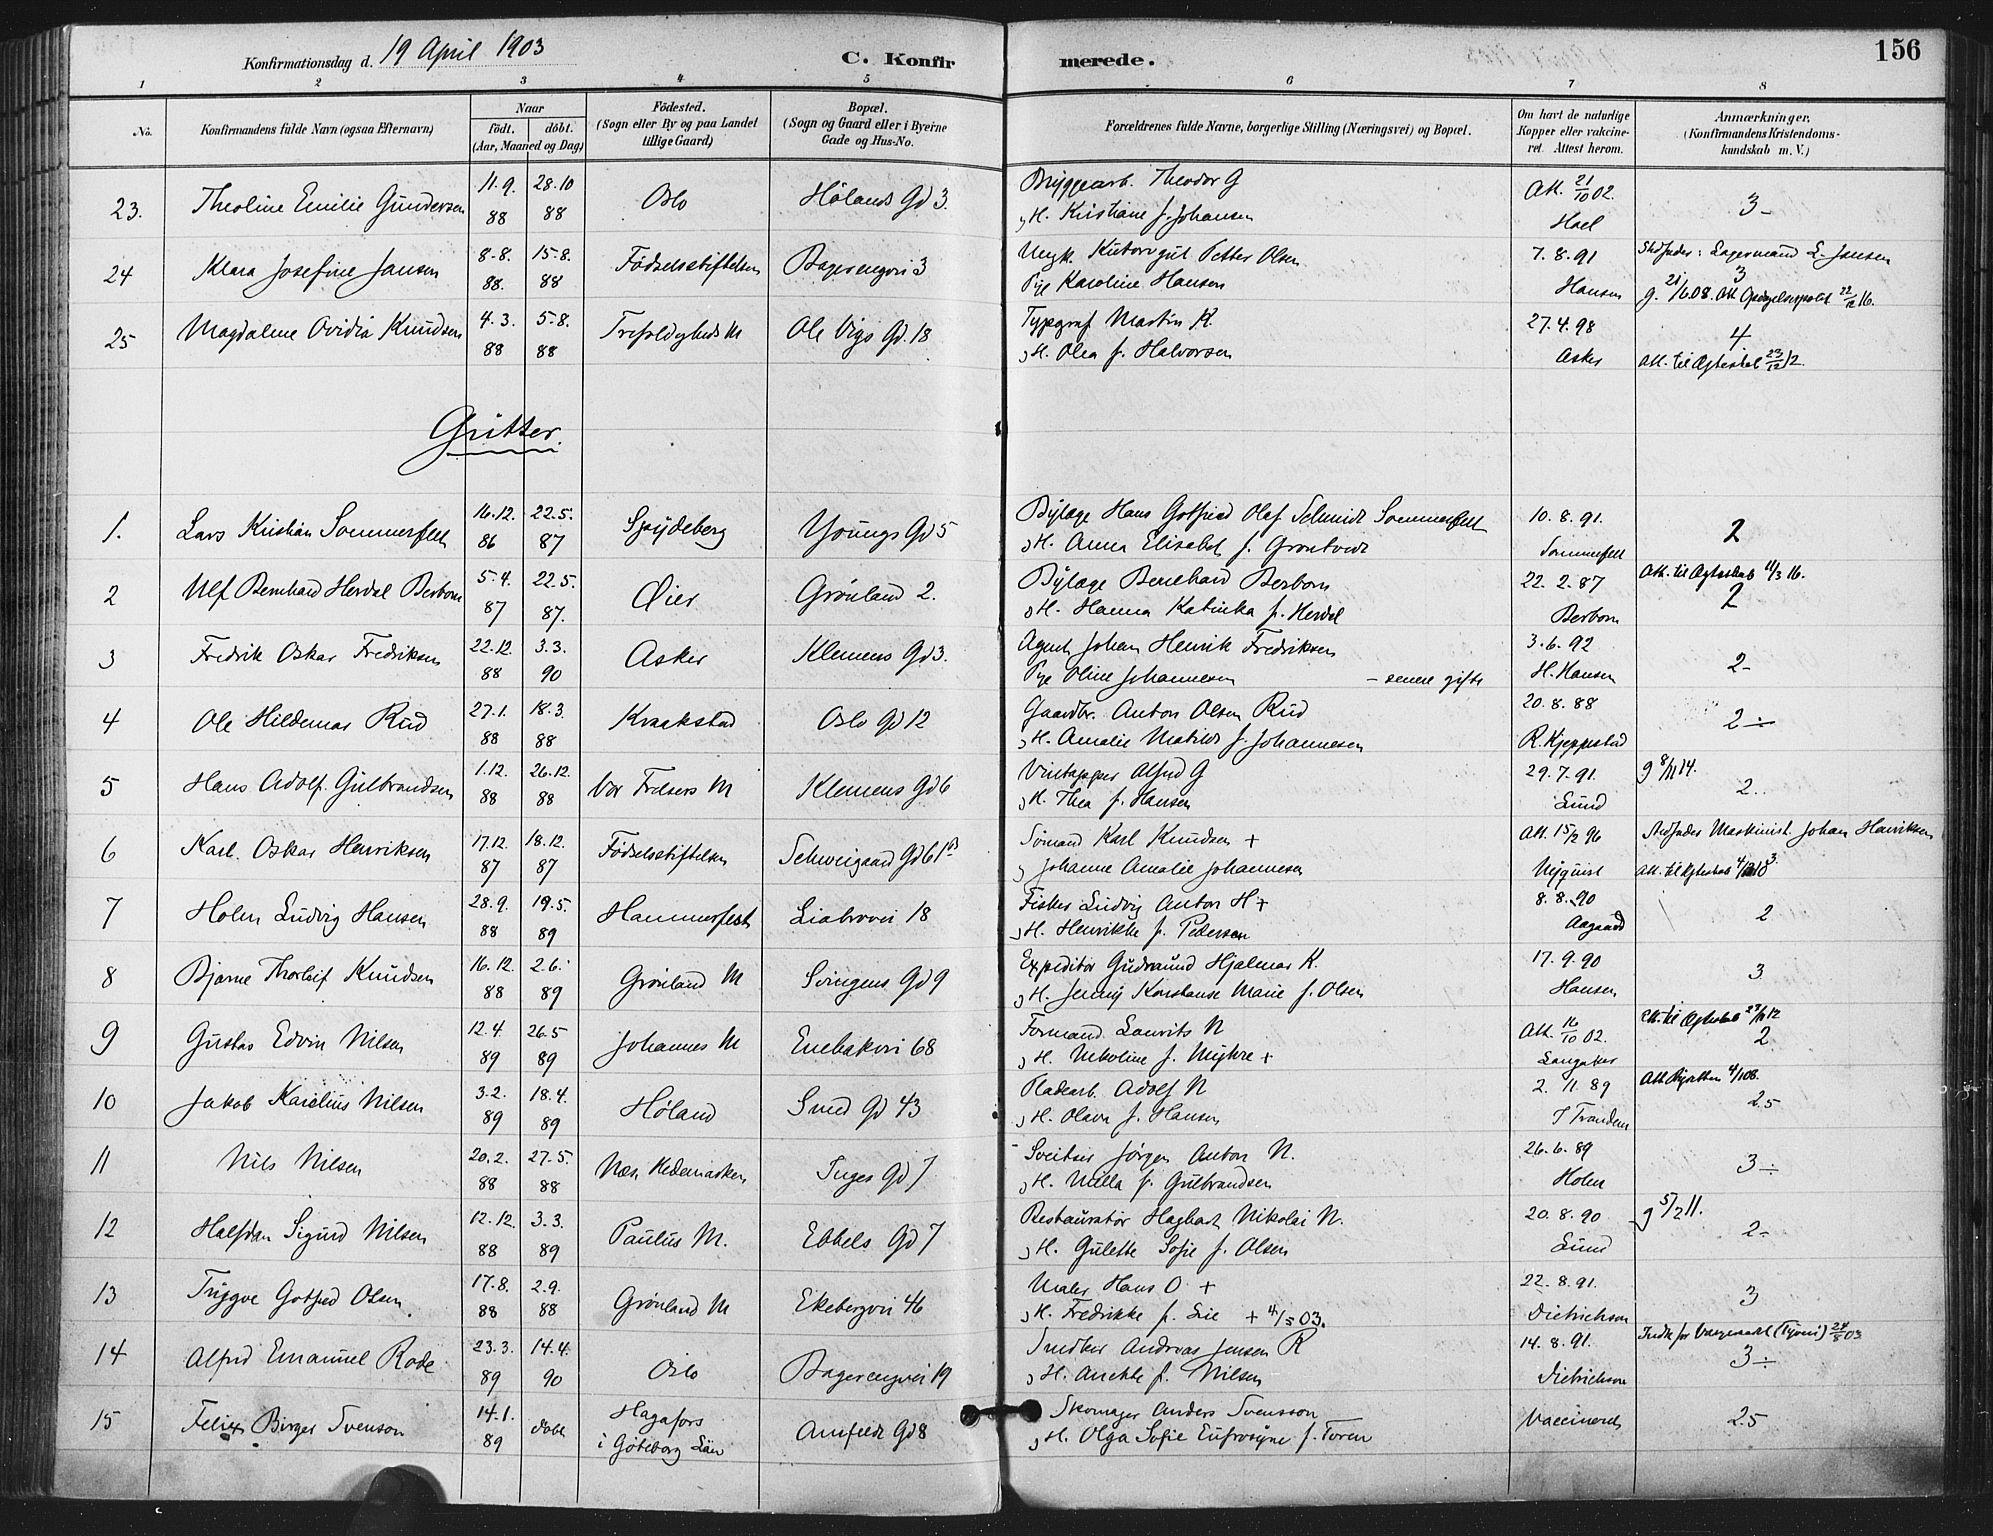 Konfirmationsdag d. 19 April 1903
C. Konfirmerede.
156
1 2 3 4 5 6 7 8
No.
Konfirmandens fulde Navn (ogsaa Efternavn)
Naar
født. døbt.
(Aar, Maaned og Dag)
Fødested.
(Sogn eller By og paa Landet
tillige Gaard)
Bopæl.
(Sogn og Gaard eller i Byerne
Gade og Hus-No.
Forældrenes fulde Navne, borgerlige Stilling (Næringsvei) og Bopæl.
Om havt de naturlige
Kopper eller vakcine-
ret. Attest herom.
Anmærkninger.
(Konfirmandens Kristendoms-
kundskab m. V.)
23. Theoline Emilie Gundersen 11.9. 88 28.10 88 Oslo Hølands Gd 3. Bryggearb. Theodor G Att. 21/10 02. 3-
H. Kristiane f. Johansen Hoel
24 Klara Josefine Jansen 8.8. 88. 15.8. 88 Fødselsstiftelsen Bagerengvei 3 Ungk. Petter Olsen 7.8.91 Stedfader: Lagermand L. Jansen
Pge Karoline Hansen Hansen 3 g. 21/6 08. 22/12 16.
25 Magdalene Ovidia Knudsen 4.3. 88 5.8. 88 Trefoldigheds M Ole Vigs Gd. 18 Typograf Martin K. 27.4.98 4
H. Olea f. Halvorsen Asker Att. til Ægteskab 23/12 12.
Gutter.
1. Lars Kristian Sommerfelt 16.12. 86 22.5. 87 Spydeberg Youngs Gd 5 Bylæge Hans Gotfried Olaf Schmidt Sommerfelt 10.8.91. 2
H. Anna Elisabet f. Grøntvedt Sommerfelt
2 Ulf Bernhard Herdal Berbom 5.4. 87 22.5. 87. Øier Grønland 2. Bylæge Bernhard Berbom 22.2.87 Att. til Ægteskab 11/3 16.
H. Hanna Katinka f. Herdal Berbom 2
3 Fredrik Oskar Fredriksen 22.12. 88 3.3. 90 Asker Klemens Gd 3. Agent Johan Henrik Fredriksen 3.6.92 2-
Pge Oline Johannesen - senere gifte H. Hansen
4 Ole Hildemar Rud 27.1. 88 18.3. 88 Kraakstad Oslo Gd 12 Gaardbr. Anton Olsen Rud 20.8.88 2÷
H. Amalie Matilde f. Johannesen R. Kjeppestad
5 Hans Adolf Gulbrandsen 1.12. 88 26.12. 88 Vor Frelsers M Klemens Gd 6 Vintapper Alfred G 29.7.91. g 8/11 14.
H. Thea f. Hansen Lund 2.
6 Karl Oskar Henriksen 17.12. 87 18.12. 87 Fødselsstiftelsen Schweigaard Gd 61 B Sømand Karl Knudsen + Att. 15/2 96 Stedfader Maskinist Johan Henriksen
Johanne Amalie Johannesen Nyquist Att. til Ægteskab 3.
7 Holm Ludvig Hansen 28.9. 88 19.5. 89 Hammerfest Liabrovei 18 Fisker Ludvig Anton H + 8.8.90 2
H. Henrikke f. Pedersen Aagaard
8 Bjarne Thorleif Knudsen 16.12. 88 2.6. 89 Grønland M Svingens Gd 9 Expeditør Gudmund Hjalmar K. 17.9.90 3
H. Jenny Konstanse Marie f. Olsen Hansen
9 Gustav Edvin Nilsen 12.4. 89 26.5 89 Johannes M Enebakvei 68 Formand Laurits N Att. 16/10 02. Att. til Ægteskab 27/11 12
H. Nikoline f. Myhre + Langaker 2
10 Jakob Karelius Nilsen 3.2. 89 18.4. 89 Høland Smed Gd 43 Pladearb. Adolf N 2.11.89 Att. 4/1 08.
H. Olava f. Hansen J Trandem 2.5
11 Nils Nilsen 20.2. 88 27.5. 88 Næs Hedemarken Inges Gd 7 Sveitser Jørgen Anton N. 26.6.89 3÷
H. Milla f. Gulbrandsen Holm
12 Halfdan Sigurd Nilsen 12.12. 88 3.3. 89 Paulus M. Ebbels Gd 7 Restauratør Hagbart Nikolai N. 20.8.90 g 5/2 11.
H. Gulette Sofie f. Olsen Lund 2-
13 Trygve Gotfred Olsen 17.8. 88 2.9. 88 Grønland M Ekebergvei 46 Maler Hans O + 22.8.91. 3
H. Fredrikke f. Lie + 4/5 03. Dietrichson
14 Alfred Emanuel Rode 23.3. 89 14.4. 90 Oslo Bagerengvei 19 Snedker Andreas Jensen R 14.8.91. Indk for Vergeraadet (Tyveri) 24/8 03
H. Anette f. Nilsen Dietrichson 3÷
15 Felix Birger Svenson 14.1. 89 døbt Hagafors i Göteborg Län Arnfeldt Gd 8 Skomager Anders Svensson Vaccineret 2.5
H. Olga Sofie Eufrosyne f. Toren